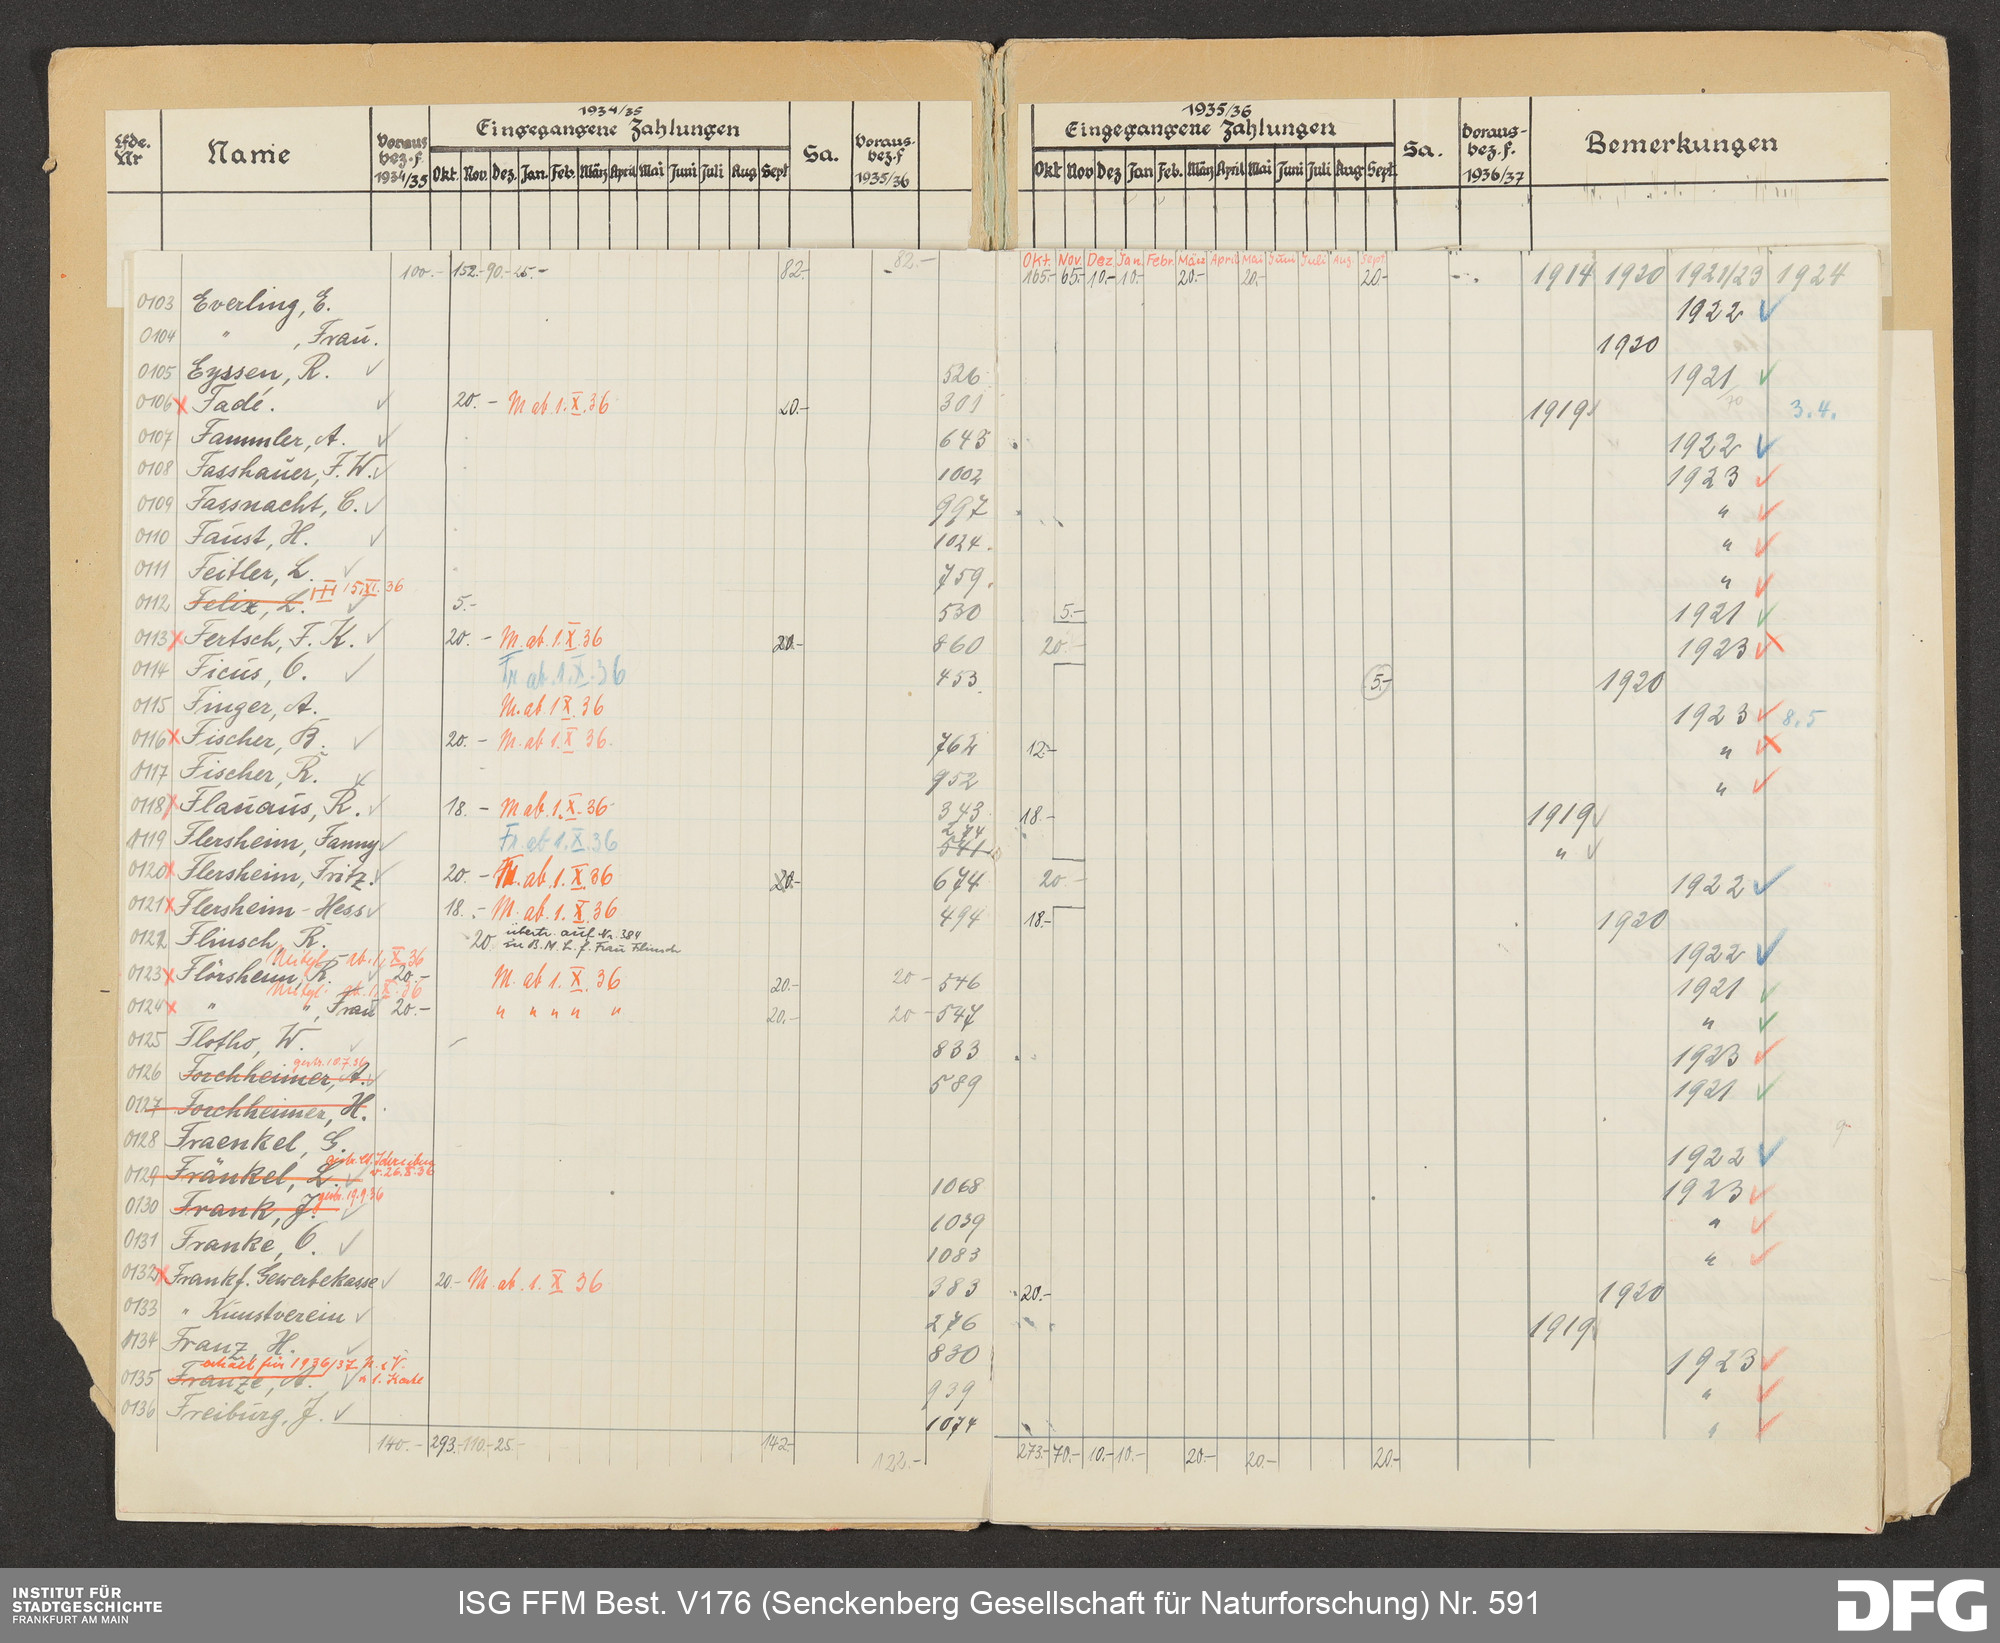 1934/35
1935/36
Lfde. Nr Name Voraus bez. f. 1934/35 Eingegangene Zahlungen Sa. Voraus- bez. f 1935/36
Okt. Nov. Dez. Jan. Feb. März April Mai Juni Juli Aug Sept
Eingegangene Zahlungen Sa. Voraus- bez. f. 1936/37 Bemerkungen
Okt Nov Dez Jan Feb. März April Mai Juni Juli Aug Sept.
100.- 152.- 90.- 25.- 82.- 82.-
Okt. Nov. Dez Jan. Febr. März April Mai Juni Juli Aug. Sept
165.- 65.- 10.- 10.- 20.- 20.- 20.- 1914 1920 1921/23 1924
0103 Everling, E. 1922 ✓
0104 " , Frau. 1920
0105 Eyssen, R. ✓ 526 1921 ✓
0106 x Fadé. ✓ 20.- M ab 1.X.36 20.- 301 1919 3.4.
0107 Fammler, A. ✓ 643 1922 ✓
0108 Fasshauer, F. W. ✓ 1002 1923 ✓
0109 Fassnacht, C. ✓ 997 " ✓
0110 Faust, H. ✓ 1024. " ✓
0111 Feitler, L. ✓ 759. " ✓
0112 Felix, L. 15.XI.36 ✓ 5.- 530 5.- 1921 ✓
0113 x Fertsch, F. K. ✓ 20.- M. ab. 1.X.36 20.- 860 20.- 1923 x
0114 Ficus, O. ✓ Fr ab 1.X.36 453 5.- 1920
0115 Finger, A. M. ab 1 X. 36 1923 ✓ 8.5
0116 x Fischer, B. ✓ 20.- M. ab 1.X 36. 762 12.- " x
0117 Fischer, R. ✓ 952 " ✓
0118 x Flauaus, R. ✓ 18.- M ab. 1.X.36 343 18.- 1919 ✓
0119 Flersheim, Fanny ✓ Fr. ab 1.X.36 274 541 " ✓
0120 x Flersheim, Fritz. ✓ 20.- M. ab. 1.X.36 20.- 674 20.- 1922 ✓
0121 x Flersheim-Hess ✓ 18.- M. ab. 1.X.36 494 18.- 1920
0122 Flinsch, R. 20. übertr. auf Nr. 384 zu B. M. L. f. Frau Flinsch 1922 ✓
Mitgl. ab. 1. X 36
0123 x Flörsheim, R. ✓ 20.- M. ab 1. X. 36 20.- 20- 546 1921 ✓
Mitgl. ab. 1.X.36
0124 x " ", Frau 20.- " " " " " 20.- 20- 547 " ✓
0125 Flotho, W. ✓ 833 1923 ✓
gestr. 10.7.36
0126 Forchheimer, A. ✓ 589 1921 ✓
0127 Forchheimer, H.
0128 Fraenkel, G. 1922 ✓
gestr. lt. Schreiben v. 26.8.36
0129 Fränkel, L. ✓ 1068 1923 ✓
0130 Frank, J. gestr. 19.9.36 ✓ 1039 " ✓
0131 Franke, O. ✓ 1083 " ✓
0132 x Frankf. Gewerbekasse ✓ 20.- M. ab. 1. X 36 383 20.- 1920
0133 " Kunstverein ✓ 276 1919
0134 Franz, H. ✓ 830 1923 ✓
erhält für 1936/37
0135 Franze, A. ✓ 1. Karte 939 " ✓
0136 Freiburg, J. ✓ 1074 " ✓
140.- 293.- 110.- 25.- 142.- 122.- 273.- 70.- 10.- 10.- 20.- 20.- 20.-
INSTITUT FÜR
STADTGESCHICHTE
FRANKFURT AM MAIN
ISG FFM Best. V176 (Senckenberg Gesellschaft für Naturforschung) Nr. 591
DFG